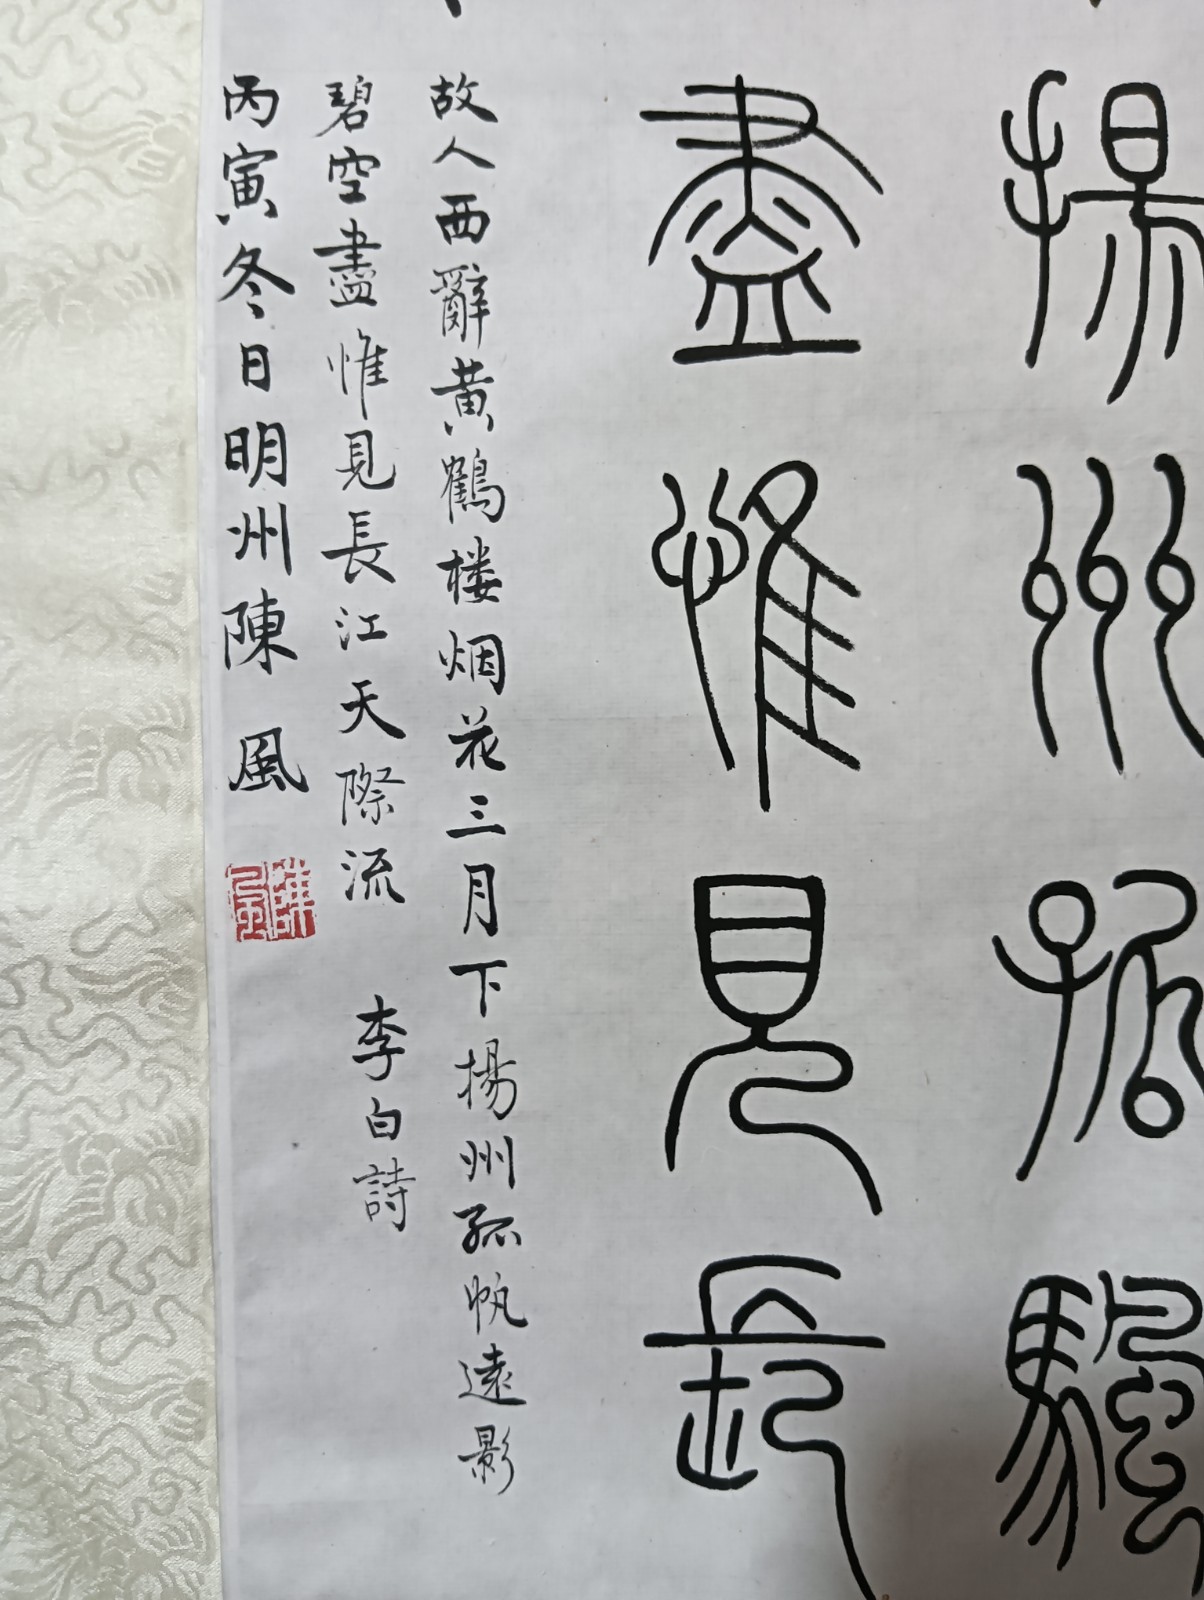 揚州孤颿
盡惟見長
故人西辭黃鶴楼烟花三月下揚州孤帆遠影
碧空盡惟見長江天際流 李白詩
丙寅冬日明州陳風